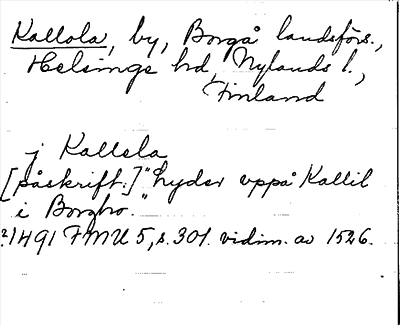 Kallola, by, Borgå landsförs.,
Helsinge hd, Nylands l.,
Finland
j Kallela
[påskrift:] "lyder vppå Kallil
i Borgbo."
1491 FMU 5, s. 301. vidim. av 1526.